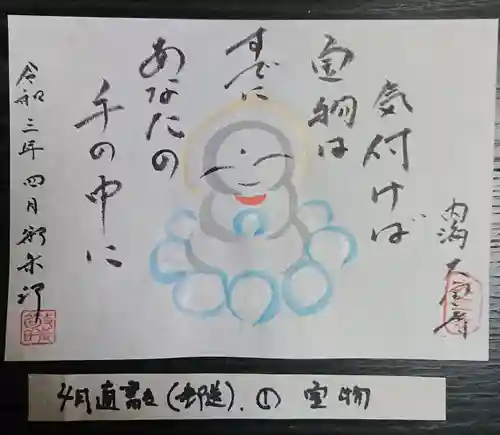 気付けば
宝物は
すでに
あなたの
手の中に
令和三年四月弥栄印
内潟大宝寺
4月直書き(郵送).① 宝物